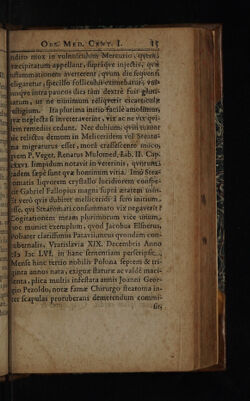 OBS. MED. CENT. I. 15
ndito mox in volnusculum Mercurio, quem
recipitatum appellant, suprâque injecto, quæ
inflammationem averterent, quum die sequenti
eligaretur, specillo folliculus eximebatur; vul-
nusque intra paucos dies tam dextrè fuit gluti-
natum, ut ne minimum reliquerit cicatriculæ
vestigium. Ita plurima initio facilè amolimur,
quæ neglecta si inveteraverint, vix ac ne vix qui-
dem remediis cedunt. Nec dubium, quin
sic relictus demum in Meliceridem vel Steato-
ma migraturus esset, morâ crassescente humo,
rem P. Veget. Renatus Mulomed. Lib. II. Cap.
XXXVI. limpidum notavit in veterinis, quorum
eadem sæpè sunt quæ hominum vitia. Imò Stea-
matis liquorem crystallo lucidiorem conspe-
xit Gabriel Fallopius magni suprà ætatem usus:
sit verò quis dubitet melliceridi à sero initium,
esse, quis Steatomati consummato vix negaverit?
Cogitationem meam plurimorum vice unum,
uoc muniet exemplum, quod Jacobus Elsnerus,
Politiæ clarissimus Patavii, meus quondam con-
tubernalis, Vratislavia XIX. Decembris Anno
MDCLVI. in hanc sententiam perscripsit.
Mense hinc tertio nobilis Polona septem & tri-
ginta annos nata, exiguæ staturæ ac valdè maci-
lenta, plica multis infestata annis Joanni Geor-
gio Pezoldo, notæ famæ Chirurgo steatoma in-
ter scapulas protuberans demetendum commi-
sit;